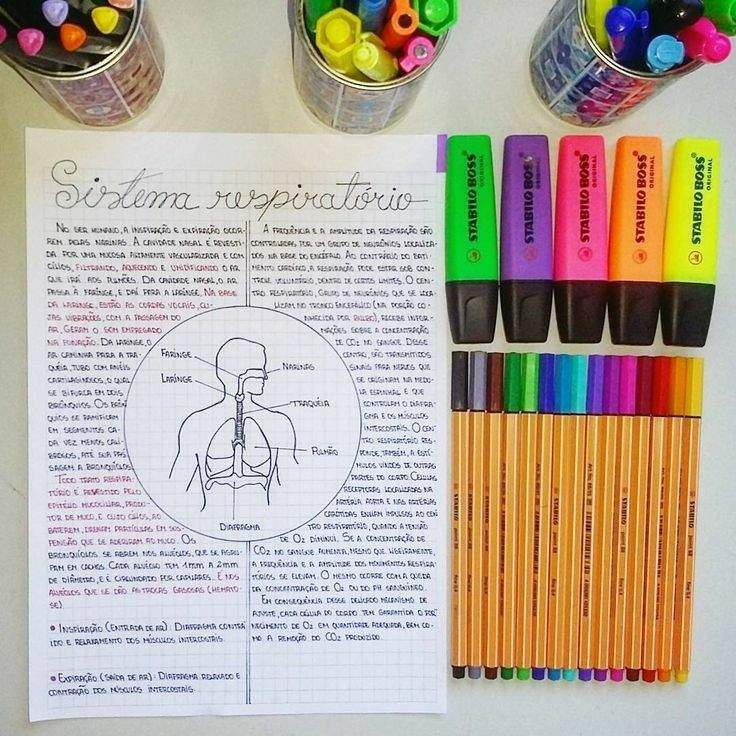 Sistema respiratório
NO SER HUMANO, A INSPIRAÇÃO E EXPIRAÇÃO OCOR-
REM PELAS NARINAS. A CAVIDADE NASAL É REVESTI-
DA POR UMA MUCOSA ALTAMENTE VASCULARIZADA E COM
CÍLIOS, FILTRANDO, AQUECENDO E UMIDIFICANDO O AR
QUE IRÁ AOS PULMÕES. DA CAVIDADE NASAL, O AR
PASSA À FARINGE, E DAÍ PARA A LARINGE. NA BASE
DA LARINGE, ESTÃO AS CORDAS VOCAIS, CU-
JAS VIBRAÇÕES, COM A PASSAGEM DO
AR, GERAM O SOM EMPREGADO
NA FONAÇÃO. DA LARINGE, O
AR CAMINHA PARA A TRA-
QUÉIA, TUBO COM ANÉIS
CARTILAGINOSOS, O QUAL
SE BIFURCA EM DOIS
BRÔNQUIOS. OS BRÔN
QUIOS SE RAMIFICAM
EM SEGMENTOS CA-
DA VEZ MENOS CALI-
BROSOS, ATÉ SUA PAS
SAGEM A BRONQUÍOLOS.
TODO TRATO RESPIRA-
TÓRIO É REVESTIDO PELO
EPITÉLIO MUCOCILIAR, PRODU-
TOR DE MUCO, E CUJO CÍLIOS, AO
BATEREM, DRENAM PARTÍCULAS EM SUS-
PENSÃO QUE SE ADERIRAM AO MUCO. OS
BRONQUÍOLOS SE ABREM NOS ALVÉOLOS, QUE SE AGRU-
PAM EM CACHOS. CADA ALVÉOLO TEM 1mm A 2mm
DE DIÂMETRO, E É CIRCUNDADO POR CAPILARES. É NOS
ALVÉOLOS QUE SE DÃO AS TROCAS GASOSAS (HEMATO-
SE)
• INSPIRAÇÃO (ENTRADA DE AR): DIAFRAGMA CONTRA
ÍDO E RELAXAMENTO DOS MÚSCULOS INTERCOSTAIS.
• EXPIRAÇÃO (SAÍDA DE AR): DIAFRAGMA RELAXADO E
CONTRAÇÃO DOS MÚSCULOS INTERCOSTAIS.
A FREQUÊNCIA E A AMPLITUDE DA RESPIRAÇÃO SÃO
CONTROLADAS POR UM GRUPO DE NEURÔNIOS LOCALIZA-
DOS NA BASE DO ENCÉFALO. AO CONTRÁRIO DO BATI-
MENTO CARDÍACO, A RESPIRAÇÃO PODE ESTAR SOB CONT
TROLE VOLUNTÁRIO, DENTRO DE CERTOS LIMITES. O CEN-
TRO RESPIRATÓRIO, GRUPO DE NEURÔNIOS QUE SE LOCA-
LIZAM NO TRONCO ENCEFÁLICO (NA PORÇÃO CO-
NHECIDA POR BULBO), RECEBE INFOR-
MAÇÕES SOBRE A CONCENTRAÇÃO
DE CO2 NO SANGUE. DESSE
CENTRO, SÃO TRANSMITIDOS
SINAIS PARA NERVOS QUE
SE ORIGINAM NA MEDU-
LA ESPINHAL E QUE
CONTROLAM O DIAFRA-
GMA E OS MÚSCULOS
INTERCOSTAIS. O CEN-
TRO RESPIRATÓRIO RES-
PONDE, TAMBÉM, A ESTÍ-
MULOS VINDOS DE OUTRAS
PARTES DO CORPO. CÉLULAS
RECEPTORAS LOCALIZADAS NA
ARTÉRIA AORTA E NAS ARTÉRIAS
CARÓTIDAS ENVIAM IMPULSOS AO CEN
TRO RESPIRATÓRIO, QUANDO A TENSÃO
DE O2 DIMINUI. SE A CONCENTRAÇÃO DE
CO2 NO SANGUE AUMENTA, MESMO QUE LIGEIRAMENTE,
A FREQUÊNCIA E A AMPLITUDE DOS MOVIMENTOS RESPIRA-
TÓRIOS SE ELEVAM. O MESMO OCORRE COM A QUEDA
DA CONCENTRAÇÃO DE O2 OU DO PH SANGUÍNEO.
EM CONSEQUÊNCIA DESSE DELICADO MECANISMO DE
AJUSTE, CADA CÉLULA DO CORPO TEM GARANTIDA O FOR-
NECIMENTO DE O2 EM QUANTIDADE ADEQUADA, BEM CO-
MO A REMOÇÃO DO CO2 PRODUZIDO.
FARINGE
LARINGE
NARINAS
TRAQUÉIA
PULMÃO
DIAFRAGMA
STABILO BOSS ORIGINAL
STABILO BOSS ORIGINAL
STABILO BOSS ORIGINAL
STABILO BOSS ORIGINAL
STABILO BOSS ORIGINAL
STABILO
STABILO
STABILO
STABILO
STABILO